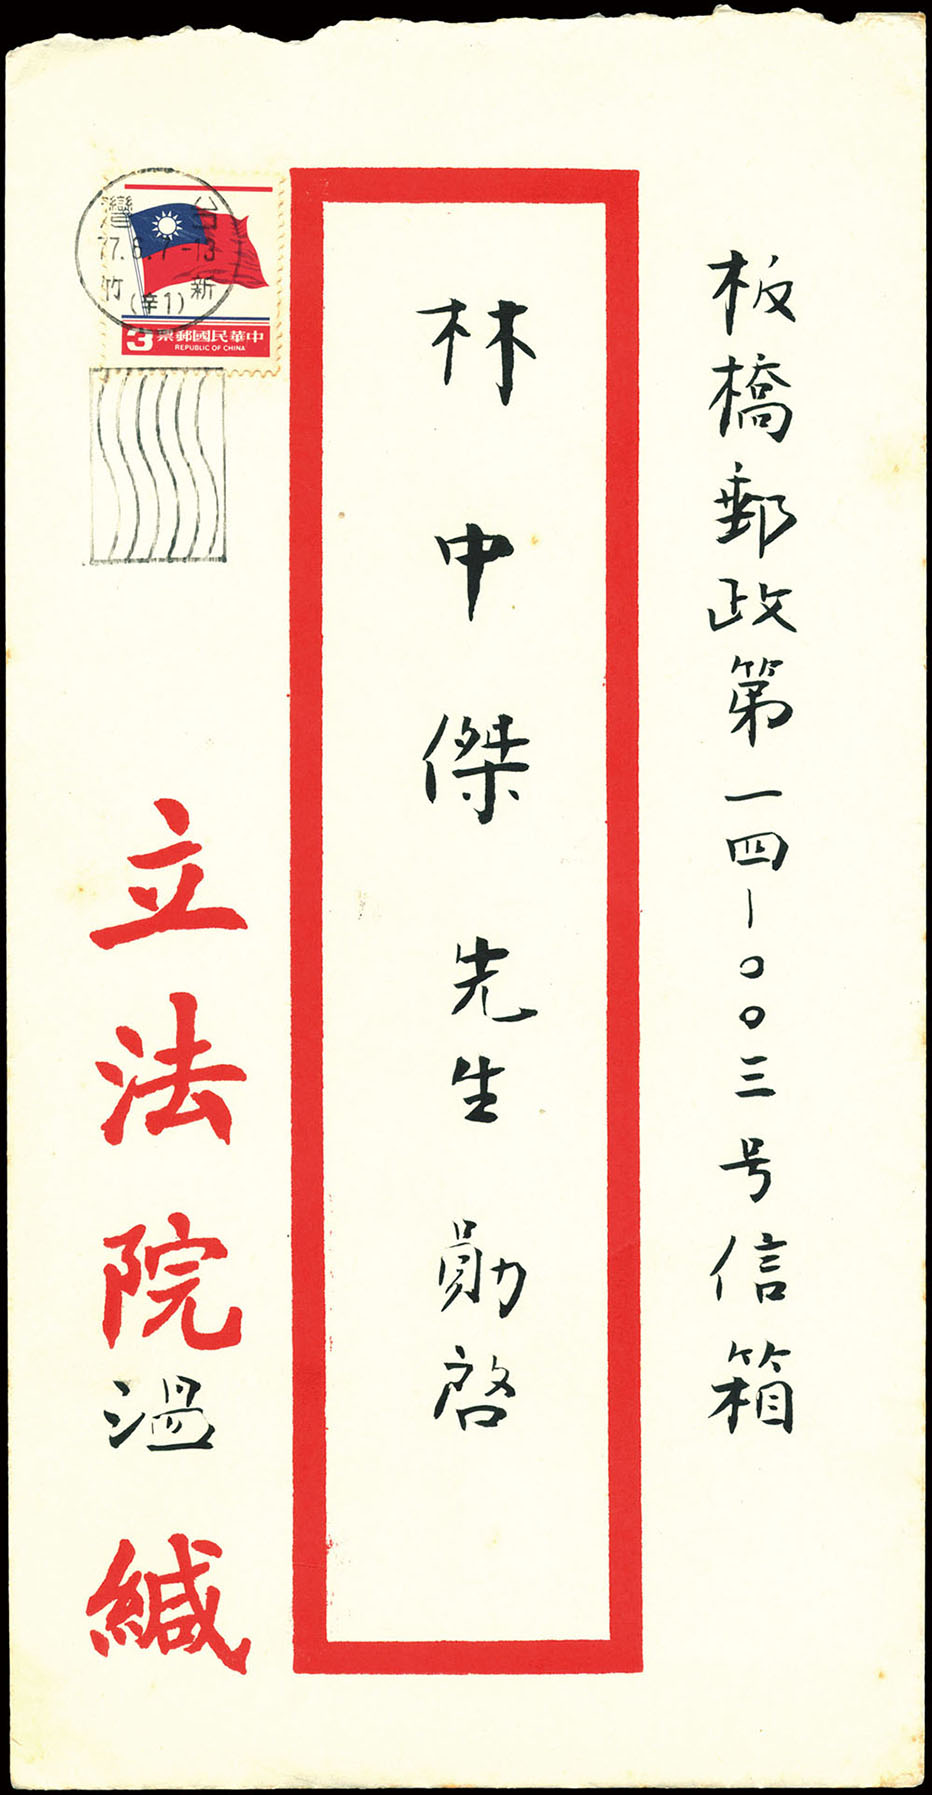 板橋郵政第一四-００三号信箱
林中傑先生勛啓
立法院溫緘
台灣
77.6.7-13
新竹
(辛1)
中華民國郵票
3
REPUBLIC OF CHINA